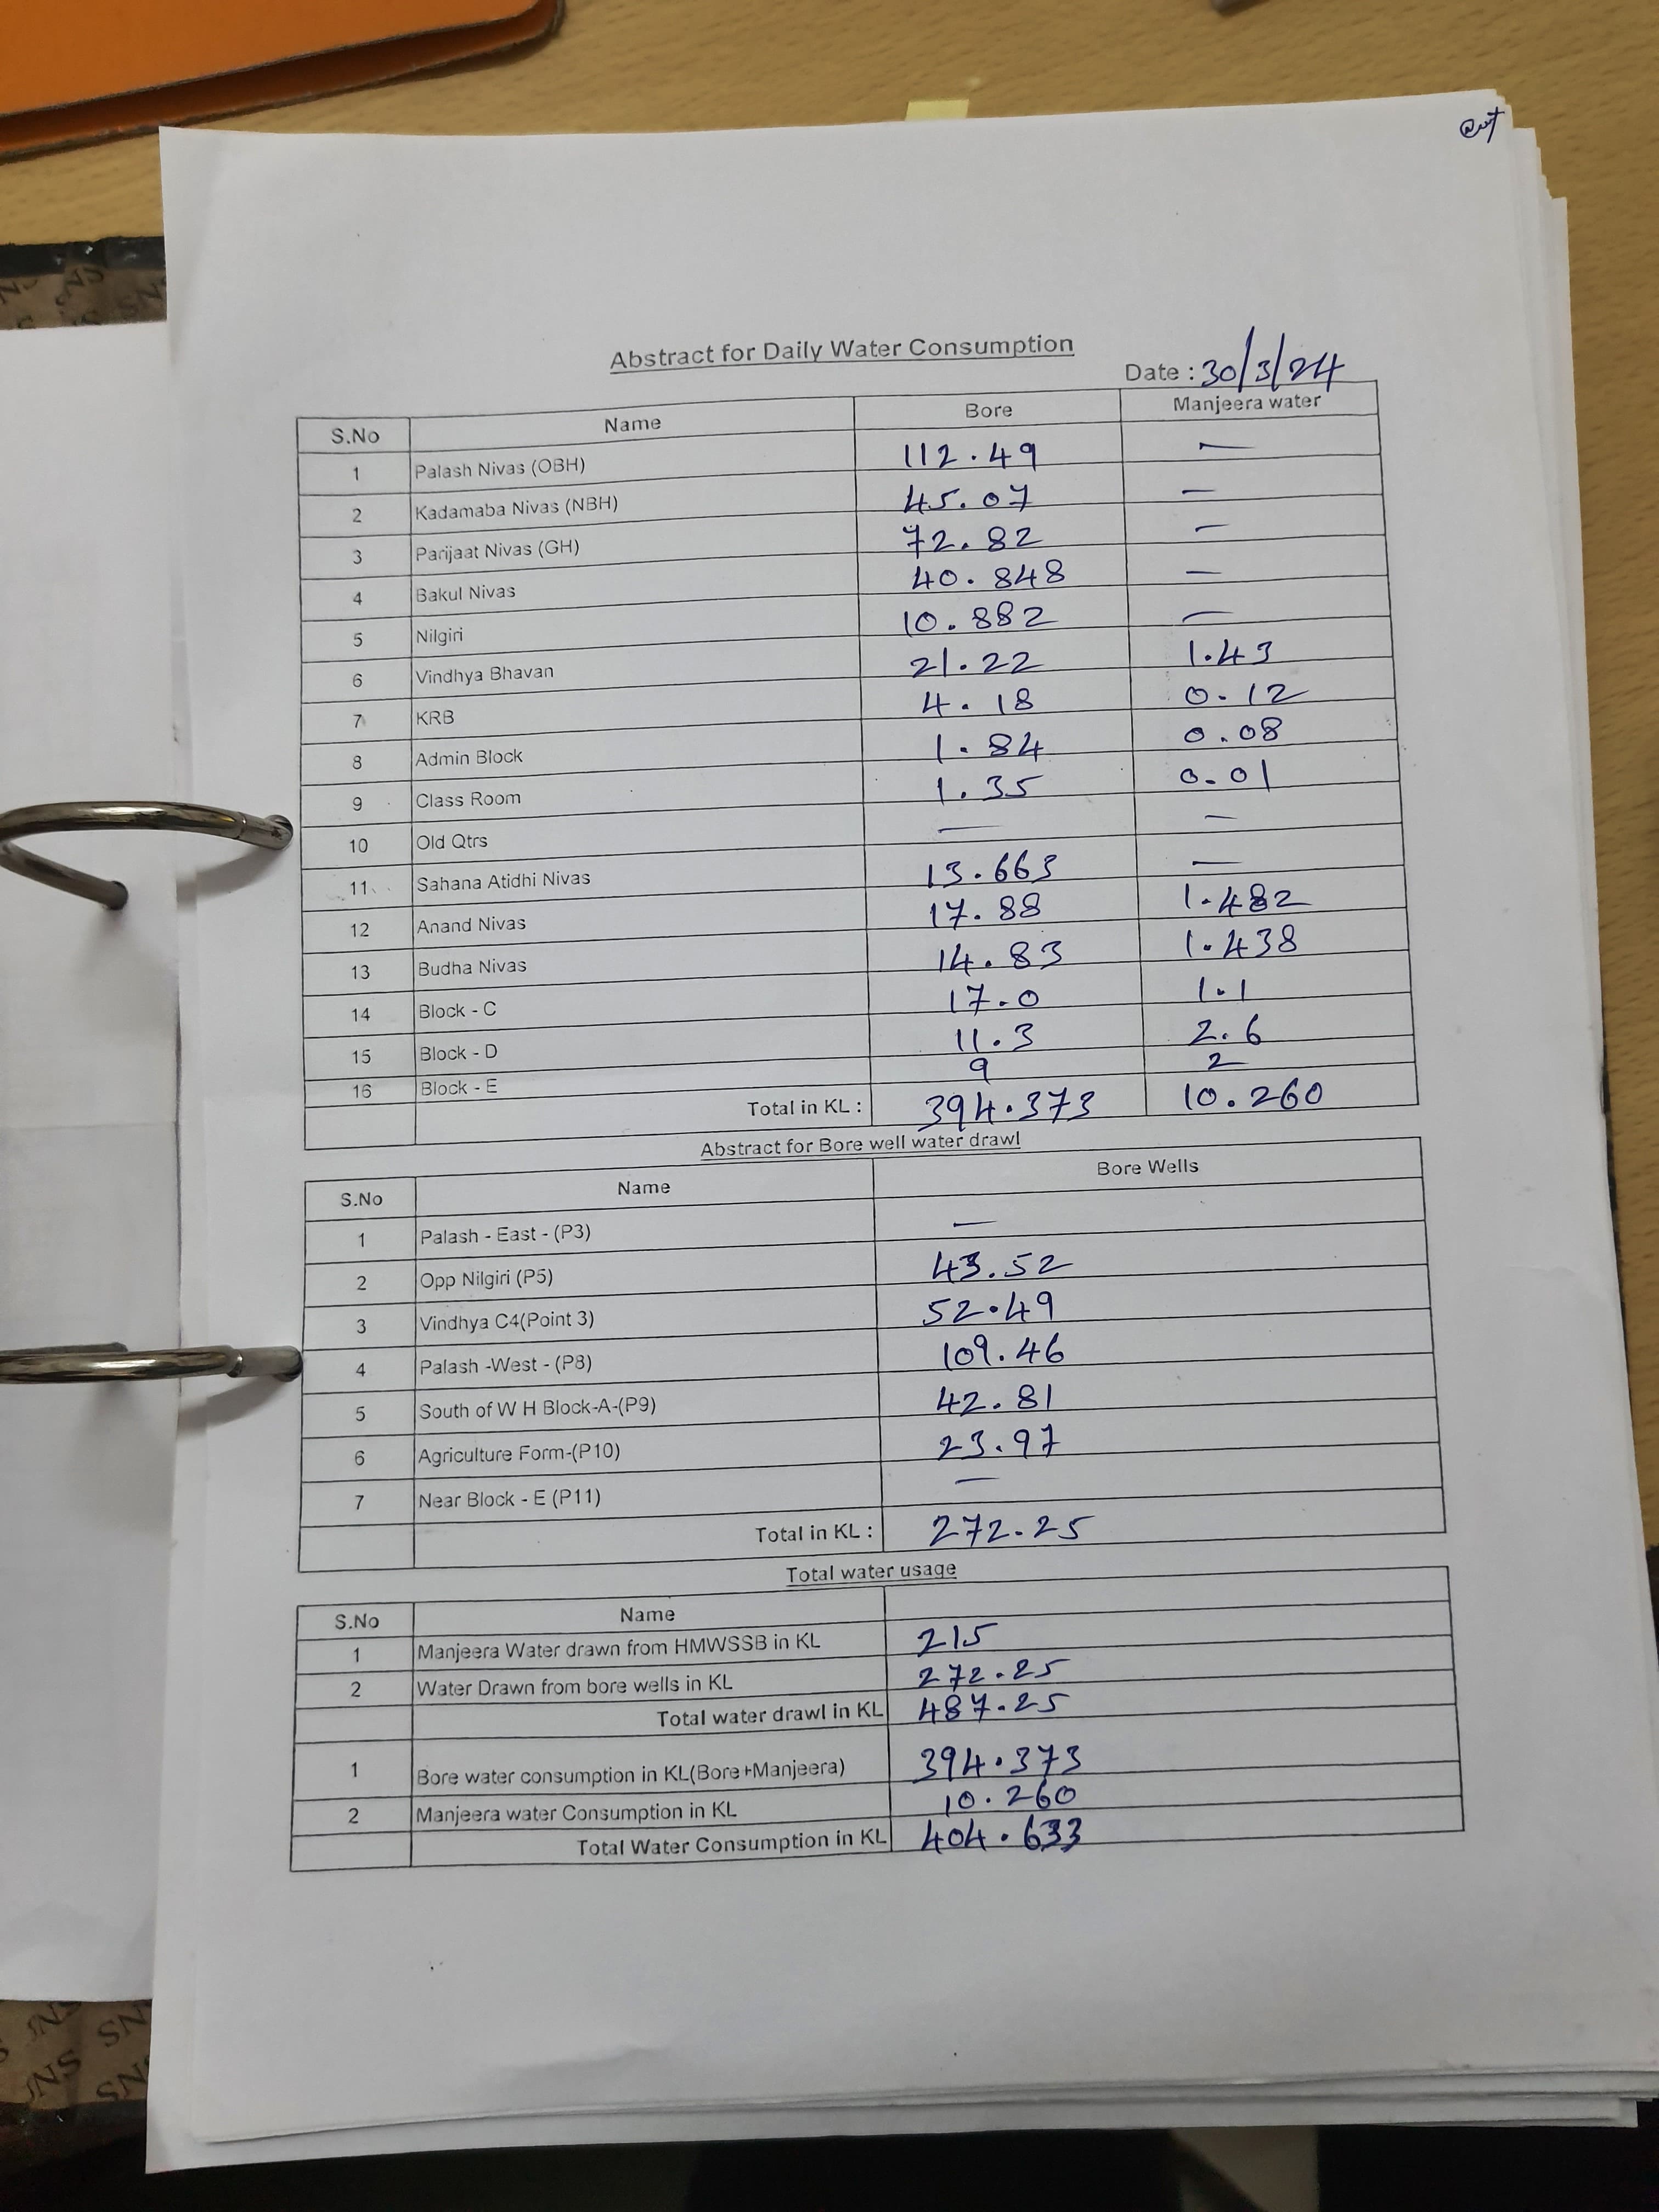 Abstract for Daily Water Consumption
Date : 30/3/24
S.No Name Bore Manjeera water
1 Palash Nivas (OBH) 112.49 —
2 Kadamaba Nivas (NBH) 45.07 —
3 Parijaat Nivas (GH) 72.82 —
4 Bakul Nivas 40.848 —
5 Nilgiri 10.882 —
6 Vindhya Bhavan 21.22 1.43
7 KRB 4.18 0.12
8 Admin Block 1.84 0.08
9 Class Room 1.35 0.01
10 Old Qtrs — —
11 Sahana Atidhi Nivas 13.663 —
12 Anand Nivas 17.88 1.482
13 Budha Nivas 14.83 1.438
14 Block - C 17.0 1.1
15 Block - D 11.3 2.6
16 Block - E 9 2
Total in KL : 394.373 10.260
Abstract for Bore well water drawl
S.No Name Bore Wells
1 Palash - East - (P3) —
2 Opp Nilgiri (P5) 43.52
3 Vindhya C4(Point 3) 52.49
4 Palash -West - (P8) 109.46
5 South of W H Block-A-(P9) 42.81
6 Agriculture Form-(P10) 23.97
7 Near Block - E (P11) —
Total in KL : 272.25
Total water usage
S.No Name
1 Manjeera Water drawn from HMWSSB in KL 215
2 Water Drawn from bore wells in KL 272.25
Total water drawl in KL 487.25
1 Bore water consumption in KL(Bore+Manjeera) 394.373
2 Manjeera water Consumption in KL 10.260
Total Water Consumption in KL 404.633
SNS
SNS
SNS